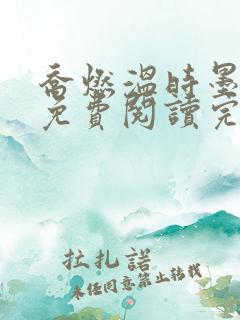 乔燃温时墨
免費閱讀完
拉扎諾
未經同意禁止轉載